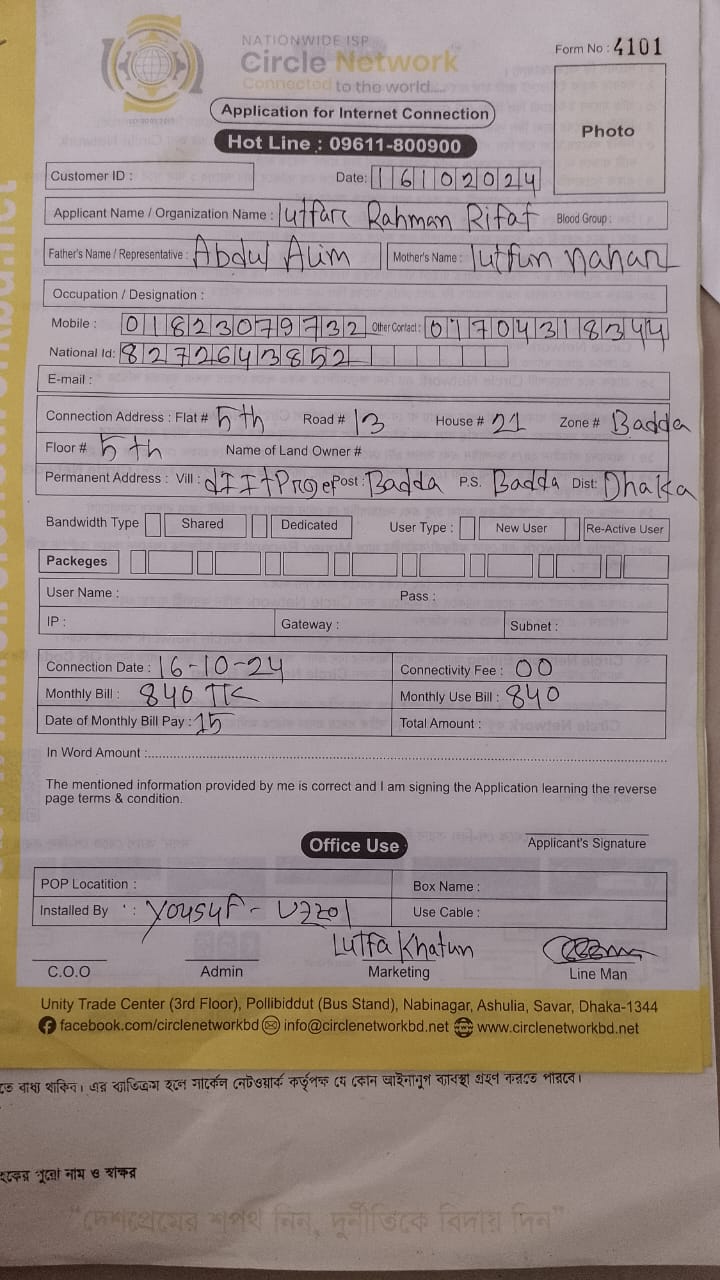 NATIONWIDE ISP
Circle Network
Connected to the world....
Form No : 4101
Application for Internet Connection
Hot Line : 09611-800900
Photo
Customer ID :
Date: 16102024
Applicant Name / Organization Name : lutfar Rahman Rifat Blood Group :
Father's Name / Representative : Abdul Alim Mother's Name : lutfun nahar
Occupation / Designation :
Mobile : 01823079732 Other Contact : 01704318344
National Id: 8272643852
E-mail :
Connection Address : Flat # 5th Road # 13 House # 21 Zone # Badda
Floor # 5th Name of Land Owner #
Permanent Address : Vill : dIItProjet Post : Badda P.S. Badda Dist: Dhaka
Bandwidth Type Shared Dedicated User Type : New User Re-Active User
Packeges
User Name : Pass :
IP : Gateway : Subnet :
Connection Date : 16-10-24 Connectivity Fee : 00
Monthly Bill : 840 TK Monthly Use Bill : 840
Date of Monthly Bill Pay : 15 Total Amount :
In Word Amount :
The mentioned information provided by me is correct and I am signing the Application learning the reverse
page terms & condition.
Office Use
Applicant's Signature
POP Locatition : Box Name :
Installed By : Yousuf - Uzzol Use Cable :
Lutfa Khatun
C.O.O Admin Marketing Line Man
Unity Trade Center (3rd Floor), Pollibiddut (Bus Stand), Nabinagar, Ashulia, Savar, Dhaka-1344
facebook.com/circlenetworkbd info@circlenetworkbd.net www.circlenetworkbd.net
তে বাধ্য থাকিব। এর ব্যতিক্রম হলে সার্কেল নেটওয়ার্ক কর্তৃপক্ষ যে কোন আইনানুগ ব্যবস্থা গ্রহণ করতে পারবে।
হকের পুরো নাম ও স্বাক্ষর
“দেশপ্রেমের শপথ নিন, দুর্নীতিকে বিদায় দিন”